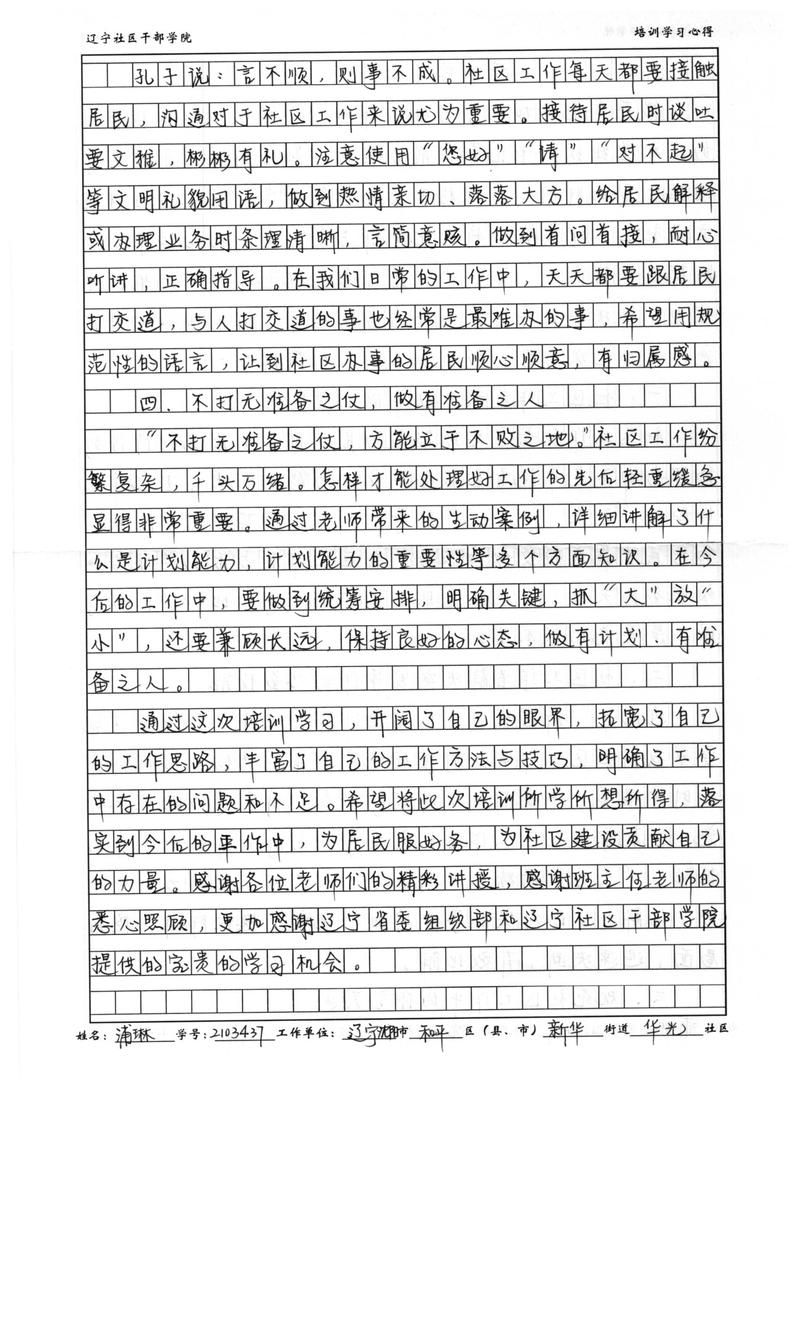 辽宁社区干部学院 培训学习心得
孔子说：言不顺，则事不成。社区工作每天都要接触
居民，沟通对于社区工作来说尤为重要。接待居民时谈吐
要文雅，彬彬有礼。注意使用“您好”“请”“对不起”
等文明礼貌用语，做到热情亲切、落落大方。给居民解释
或办理业务时条理清晰，言简意赅。做到首问首接，耐心
听讲，正确指导。在我们日常的工作中，天天都要跟居民
打交道，与人打交道的事也经常是最难办的事，希望用规
范性的语言，让到社区办事的居民顺心顺意，有归属感。
四．不打无准备之仗，做有准备之人
“不打无准备之仗，方能立于不败之地。”社区工作纷
繁复杂，千头万绪。怎样才能处理好工作的先后轻重缓急
显得非常重要。通过老师带来的生动案例，详细讲解了什
么是计划能力，计划能力的重要性等多个方面知识。在今
后的工作中，要做到统筹安排，明确关键，抓“大”放“
小”，还要兼顾长远，保持良好的心态，做有计划、有准
备之人。
通过这次培训学习，开阔了自己的眼界，拓宽了自己
的工作思路，丰富了自己的工作方法与技巧，明确了工作
中存在的问题和不足。希望将此次培训所学所想所得，落
实到今后的工作中，为居民服好务，为社区建设贡献自己
的力量。感谢各位老师们的精彩讲授，感谢班主任老师的
悉心照顾，更加感谢辽宁省委组织部和辽宁社区干部学院
提供的宝贵的学习机会。
姓名：浦琳 学号：2103437 工作单位：辽宁 市 和平 区（县、市） 新华 街道 华光 社区